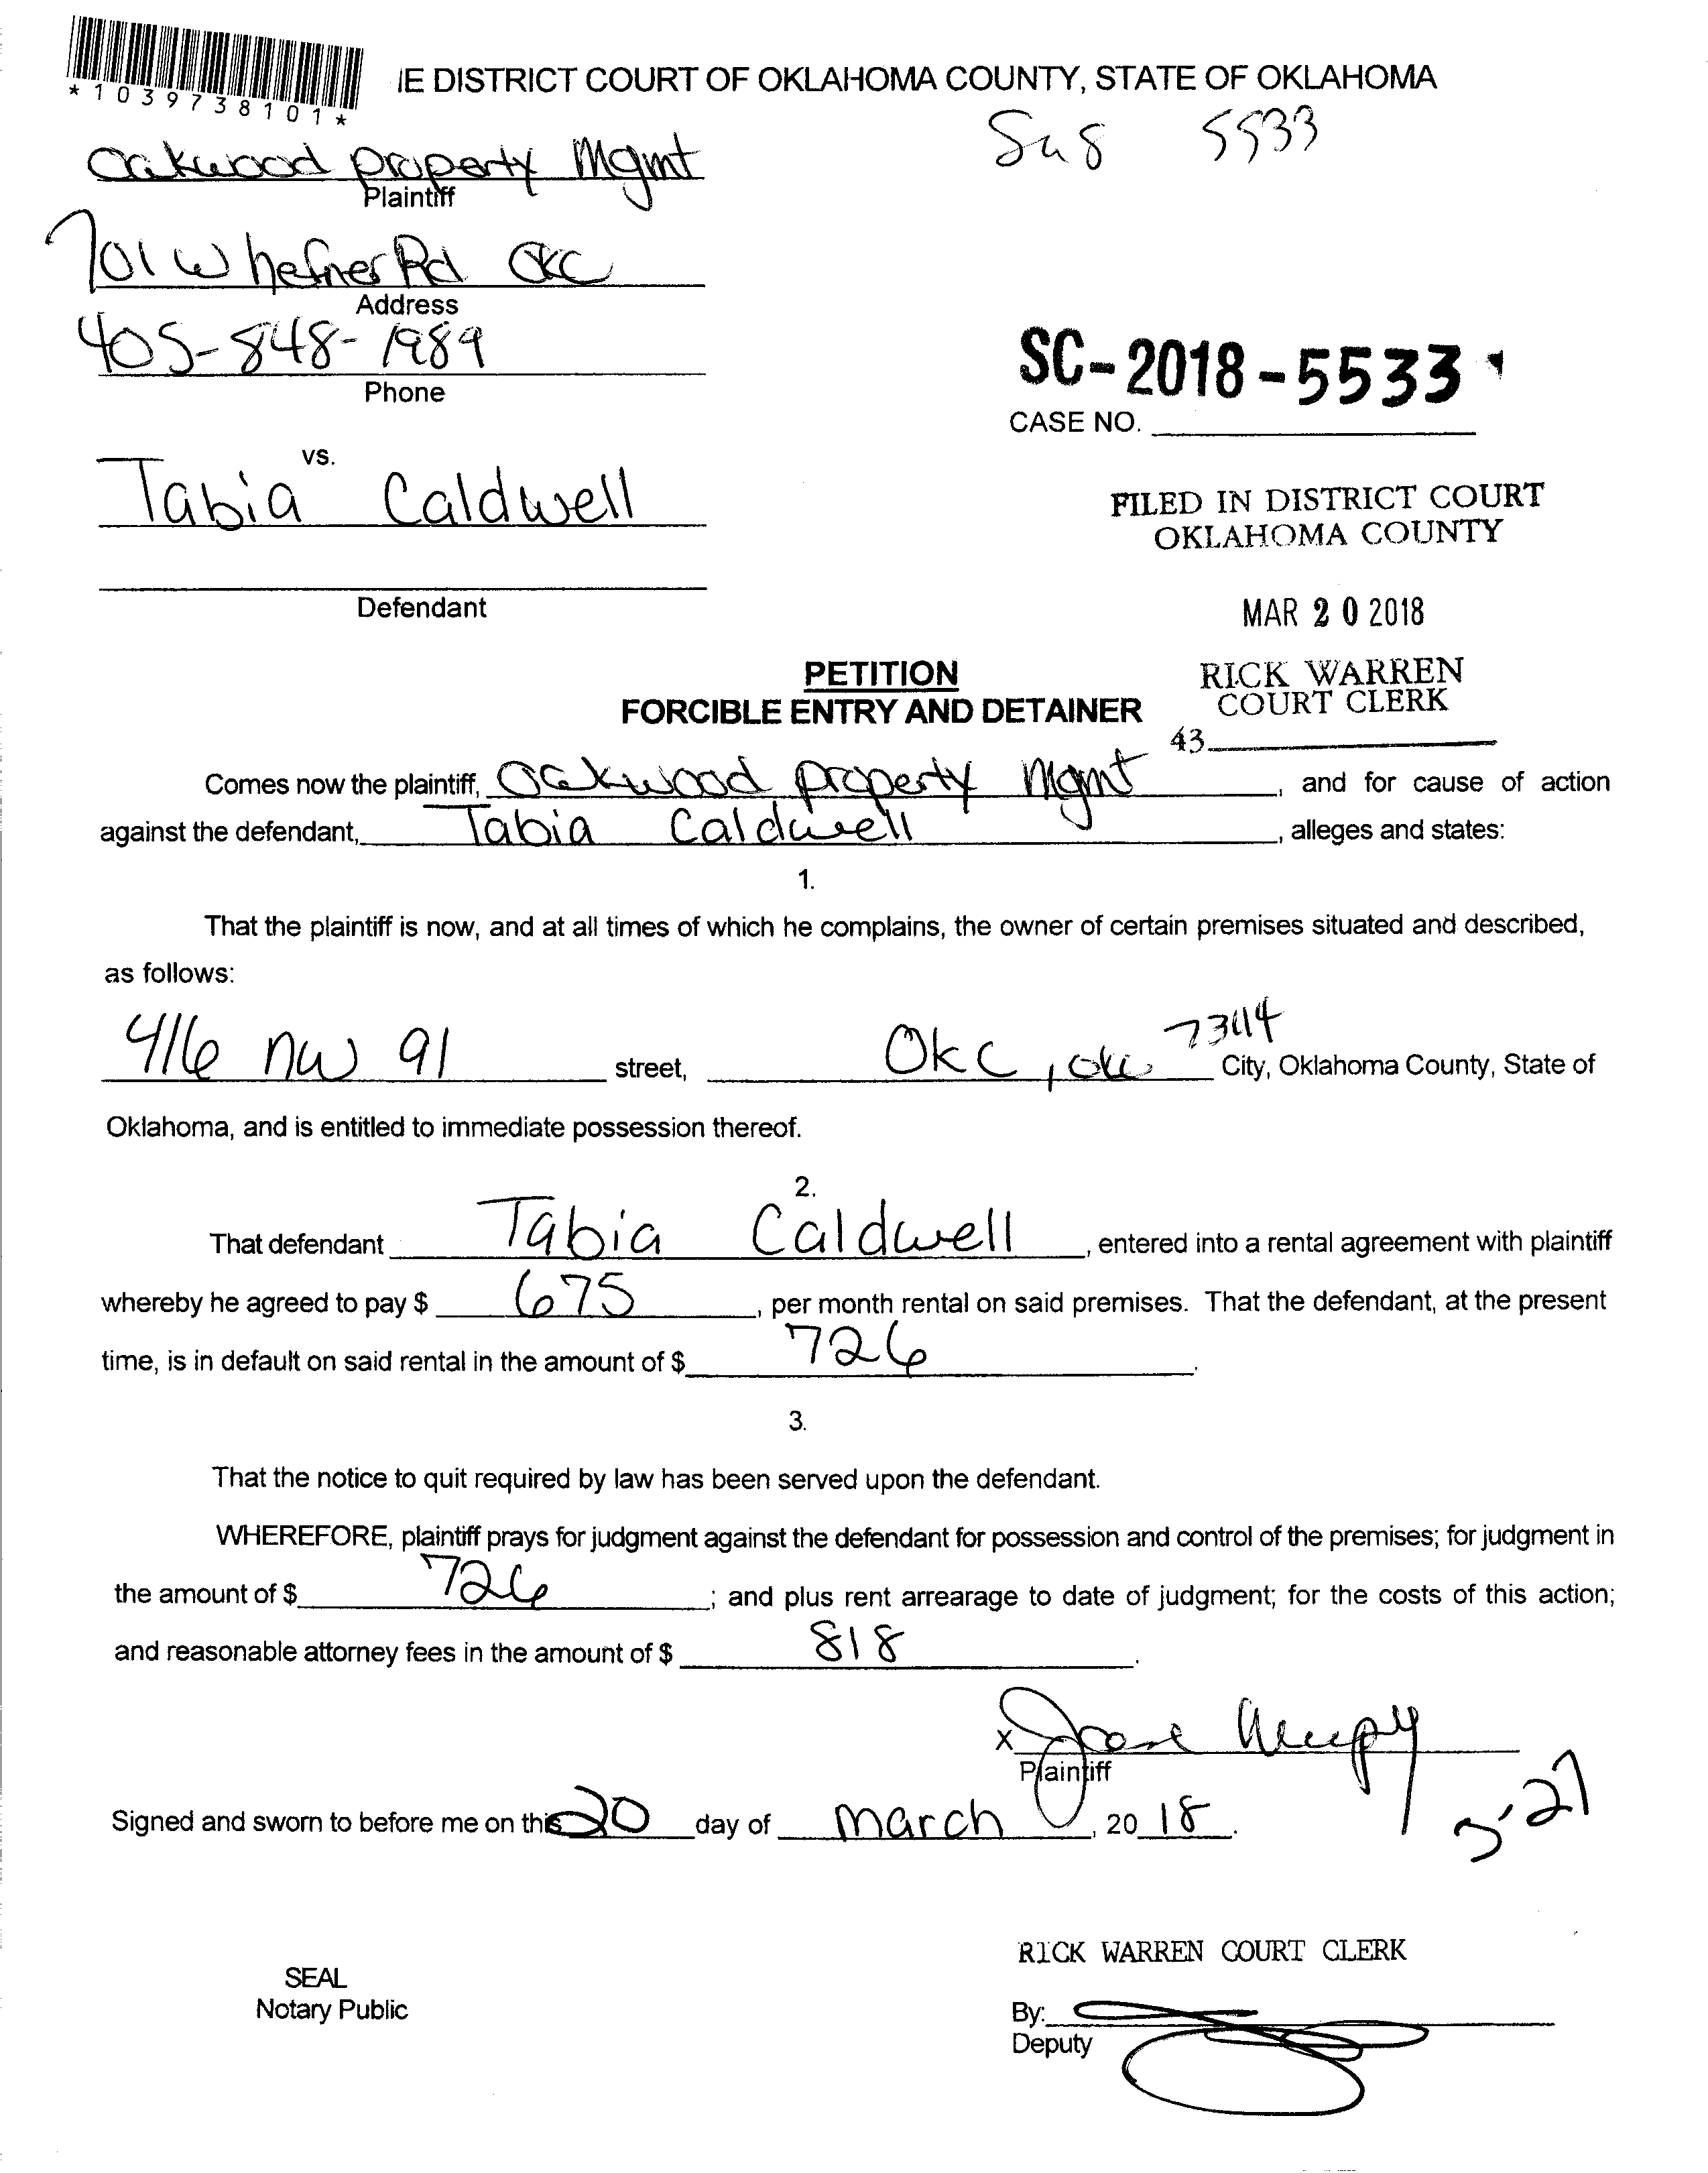 *1039738101*
IE DISTRICT COURT OF OKLAHOMA COUNTY, STATE OF OKLAHOMA
5533
Oakwood property Mgmt
Plaintiff
701 W hefner Rd OKC
Address
405-848-1989
Phone
SC-2018-5533
CASE NO.
vs.
Tabia Caldwell
FILED IN DISTRICT COURT
OKLAHOMA COUNTY
Defendant
MAR 20 2018
PETITION
FORCIBLE ENTRY AND DETAINER
RICK WARREN
COURT CLERK
43
Comes now the plaintiff, Oakwood property Mgmt, and for cause of action
against the defendant, Tabia Caldwell, alleges and states:
1.
That the plaintiff is now, and at all times of which he complains, the owner of certain premises situated and described,
as follows:
416 nw 91 street, OKC, OK 73114 City, Oklahoma County, State of
Oklahoma, and is entitled to immediate possession thereof.
2.
That defendant Tabia Caldwell, entered into a rental agreement with plaintiff
whereby he agreed to pay $ 675, per month rental on said premises. That the defendant, at the present
time, is in default on said rental in the amount of $ 726.
3.
That the notice to quit required by law has been served upon the defendant.
WHEREFORE, plaintiff prays for judgment against the defendant for possession and control of the premises; for judgment in
the amount of $ 726; and plus rent arrearage to date of judgment; for the costs of this action;
and reasonable attorney fees in the amount of $ 818.
X
Plaintiff
3-27
Signed and sworn to before me on this 20 day of March, 20 18.
RICK WARREN COURT CLERK
SEAL
Notary Public
By:
Deputy